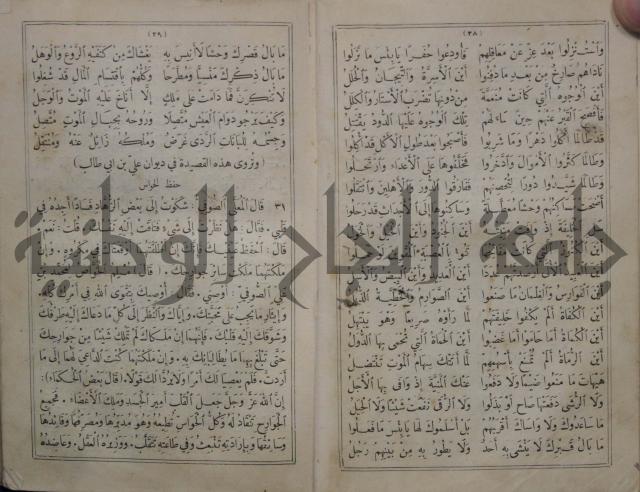 (٣٨)
وَاسْتُنْزِلُوا بَعْدَ عِزٍّ عَنْ مَعَاقِلِهِمْ فَأُودِعُوا حُفَرًا يَا بِئْسَ مَا نَزَلُوا
نَادَاهُمُ صَارِخٌ مِنْ بَعْدِ مَا دُفِنُوا أَيْنَ الْأَسِرَّةُ وَالتِّيجَانُ وَالْحُلَلُ
أَيْنَ الْوُجُوهُ الَّتِي كَانَتْ مُنَعَّمَةً مِنْ دُونِهَا تُضْرَبُ الْأَسْتَارُ وَالْكِلَلُ
فَأَفْصَحَ الْقَبْرُ عَنْهُمْ حِينَ سَاءَلَهُمْ تِلْكَ الْوُجُوهُ عَلَيْهَا الدُّودُ يَقْتَتِلُ
قَدْ طَالَمَا أَكَلُوا دَهْرًا وَمَا شَرِبُوا فَأَصْبَحُوا بَعْدَ طُولِ الْأَكْلِ قَدْ أُكِلُوا
وَطَالَمَا كَثَّرُوا الْأَمْوَالَ وَادَّخَرُوا فَخَلَّفُوهَا عَلَى الْأَعْدَاءِ وَارْتَحَلُوا
وَطَالَمَا شَيَّدُوا دُورًا لِتُحْصِنَهُمْ فَفَارَقُوا الدُّورَ وَالْأَهْلِينَ وَانْتَقَلُوا
أَضْحَتْ مَسَاكِنُهُمْ وَحْشًا مُعَطَّلَةً وَسَاكِنُوهَا إِلَى الْأَجْدَاثِ قَدْ رَحَلُوا
أَيْنَ الْفَوَارِسُ وَالْغِلْمَانُ مَا صَنَعُوا أَيْنَ الصَّوَارِمُ وَالْخَطِّيَّةُ الذُّبُلُ
أَيْنَ الْكُفَاةُ أَلَمْ يَكْفُوا خَلِيفَتَهُمْ لَمَّا رَأَوْهُ صَرِيعًا وَهُوَ يَبْتَهِلُ
أَيْنَ الْكُمَاةُ أَمَا حَامُوا أَمَا غَضِبُوا أَيْنَ الْحُمَاةُ الَّتِي تُحْمَى بِهَا الدُّوَلُ
أَيْنَ الرُّمَاةُ أَلَمْ تُمْنَعْ بِأَسْهُمِهِمْ لَمَّا أَتَتْكَ سِهَامُ الْمَوْتِ تَنْتَضِلُ
هَيْهَاتَ مَا مَنَعُوا ضَيْمًا وَلَا دَفَعُوا عَنْكَ الْمَنِيَّةَ إِذْ وَافَى بِهَا الْأَجَلُ
وَلَا الرُّشَى دَفَعَتْهَا صَاحِ لَوْ بَذَلُوا وَلَا الرُّقَى نَفَعَتْ شَيْئًا وَلَا الْحِيَلُ
مَا سَاعَدُوكَ وَلَا وَاسَاكَ أَقْرَبُهُمْ بَلْ أَسْلَمُوكَ لَهَا يَا بِئْسَ مَا فَعَلُوا
مَا بَالُ قَبْرِكَ لَا يَغْشَى بِهِ أَحَدٌ وَلَا يَطُورُ بِهِ مِنْ بَيْنِهِمْ رَجُلُ
(٣٩)
مَا بَالُ قَصْرِكَ وَحْشًا لَا أَنِيسَ بِهِ يَغْشَاكَ مِنْ كَنَفَيْهِ الرَّوْعُ وَالْوَهَلُ
مَا بَالُ ذِكْرِكَ مَنْسِيًّا وَمُطَّرَحًا وَكُلُّهُمْ بِاقْتِسَامِ الْمَالِ قَدْ شُغِلُوا
لَا تُنْكِرَنَّ فَمَا دَامَتْ عَلَى مَلِكٍ إِلَّا أَنَاخَ عَلَيْهِ الْمَوْتُ وَالْوَجَلُ
وَكَيْفَ يَرْجُو دَوَامَ الْعَيْشِ مُتَّصِلًا وَرُوحُهُ بِحِبَالِ الْمَوْتِ مُتَّصِلُ
وَجِسْمُهُ لِلُبَانَاتِ الرَّدَى غَرَضٌ وَمُلْكُهُ زَائِلٌ عَنْهُ وَمُنْتَقِلُ
(وتروى هذه القصيدة في ديوان علي بن ابي طالب)
حفظ الحواس
٣١ قَالَ الْمُعَلَّى الصُّوفِيُّ: شَكَوْتُ إِلَى بَعْضِ الزُّهَّادِ فَسَادًا أَجِدُهُ فِي
قَلْبِي. فَقَالَ: هَلْ نَظَرْتَ إِلَى شَيْءٍ فَتَاقَتْ إِلَيْهِ نَفْسُكَ. قُلْتُ: نَعَمْ.
قَالَ: احْفَظْ عَيْنَيْكَ فَإِنَّكَ إِنْ أَطْلَقْتَهُمَا أَوْقَعَتَاكَ فِي مَكْرُوهٍ. وَإِنْ
مَلَكْتَهُمَا مَلَكْتَ سَائِرَ جَوَارِحِكَ. (قَالَ) مُسْلِمٌ الْخَوَّاصُ لِمُحَمَّدِ بْنِ
عَلِيٍّ الصُّوفِيِّ: أَوْصِنِي. فَقَالَ: أُوصِيكَ بِتَقْوَى اللّٰهِ فِي أَمْرِكَ كُلِّهِ.
وَإِيثَارِ مَا يَجِبُ عَلَى مَحَبَّتِكَ. وَإِيَّاكَ وَالنَّظَرَ إِلَى كُلِّ مَا دَعَاكَ إِلَيْهِ طَرْفُكَ
وَشَوَّقَكَ إِلَيْهِ قَلْبُكَ. فَإِنَّهُمَا إِنْ مَلَكَاكَ لَمْ تَمْلِكْ شَيْئًا مِنْ جَوَارِحِكَ
حَتَّى تَبْلُغَ بِهِمَا مَا يُطَالِبَانِكَ بِهِ. وَإِنْ مَلَكْتَهُمَا كُنْتَ الدَّاعِيَ لَهُمَا إِلَى مَا
أَرَدْتَ. فَلَمْ يَعْصِيَا لَكَ أَمْرًا وَلَمْ يَرُدَّا لَكَ قَوْلًا. (قَالَ بَعْضُ الْحُكَمَاءِ):
إِنَّ اللّٰهَ عَزَّ وَجَلَّ جَعَلَ الْقَلْبَ أَمِيرَ الْجَسَدِ وَمَلِكَ الْأَعْضَاءِ. فَجَمِيعُ
الْجَوَارِحِ تَنْقَادُ لَهُ وَكُلُّ الْحَوَاسِّ تُطِيعُهُ وَهُوَ مُدِيرُهَا وَمُصَرِّفُهَا وَقَائِدُهَا
وَسَائِقُهَا وَبِإِرَادَتِهِ تَنْبَعِثُ وَفِي طَاعَتِهِ تَتَقَلَّبُ. وَوَزِيرُهُ الْعَقْلُ. وَعَاضِدُهُ
جامعة النجاح الوطنية